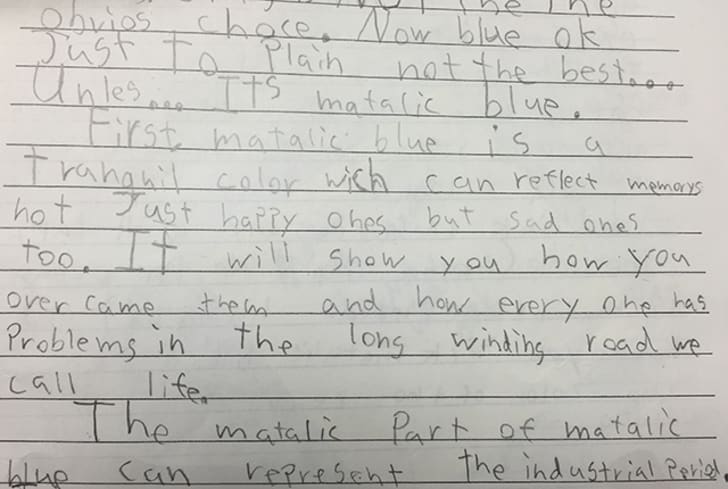 the
obvios choce. Now blue ok
Just to Plain not the best...
Unles... Its matalic blue.
First matalic blue is a
tranquil color wich can reflect memorys
not Just happy ones but sad ones
too. It will show you how you
over came them and how every one has
Problems in the long winding road we
call life.
The matalic Part of matalic
blue can represent the industrial Period.